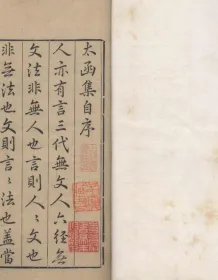 太函集自序
人亦有言三代無文人六经無
文法非無人也言則人〻文也
非無法也文則言〻法也盖當